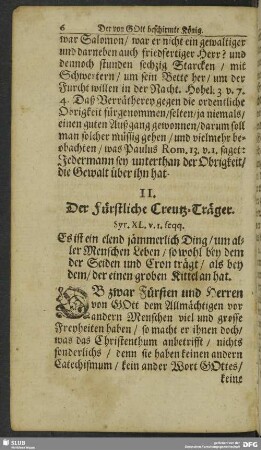 6 Der von GOtt beschirmte König.
war Salomon/ war er nicht ein gewaltiger
und darneben auch friedfertiger Herr? und
dennoch stunden sechzig Starcken/ mit
Schwertern/ um sein Bette her/ um der
Furcht willen in der Nacht. Hohel. 3 v. 7.
4. Daß Verrätherey gegen die ordentliche
Obrigkeit fürgenommen/ selten/ ja niemals/
einen guten Außgang gewonnen/ darum soll
man solcher müssig gehen/ und vielmehr be-
obachten/ was Paulus Rom. 13. v. 1. saget:
Jedermann sey unterthan der Obrigkeit/
die Gewalt über ihn hat.
II.
Der Fürstliche Creutz-Träger.
Syr. XL. v. 1. seqq.
Es ist ein elend jämmerlich Ding/ um al-
ler Menschen Leben/ so wohl bey dem
der Seiden und Cron trägt/ als bey
dem/ der einen groben Kittel an hat.
OB zwar Fürsten und Herren
von GOtt dem Allmächtigen vor
andern Menschen viel und grosse
Freyheiten haben/ so macht er ihnen doch/
was das Christenthum anbetrifft/ nichts
sonderlichs/ denn sie haben keinen andern
Catechismum/ kein ander Wort GOttes/
keine
SLUB
DFG